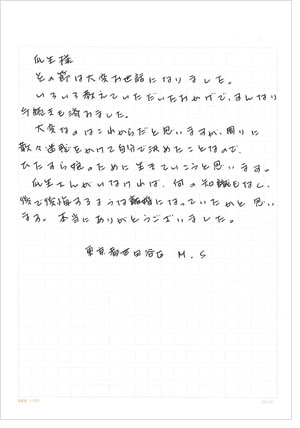 瓜生様
その節は大変お世話になりました。
いろいろ教えていただいたおかげで、すんなり
手続きも済みました。
大変なのはこれからだと思いますが、周りに
散々迷惑をかけて自分で決めたことなので、
ひたすら娘のために生きていこうと思います。
瓜生さんがいなければ、何の知識もなし、
後で後悔するような離婚になっていたかと思い
ます。本当にありがとうございました。
東京都世田谷区 M.S